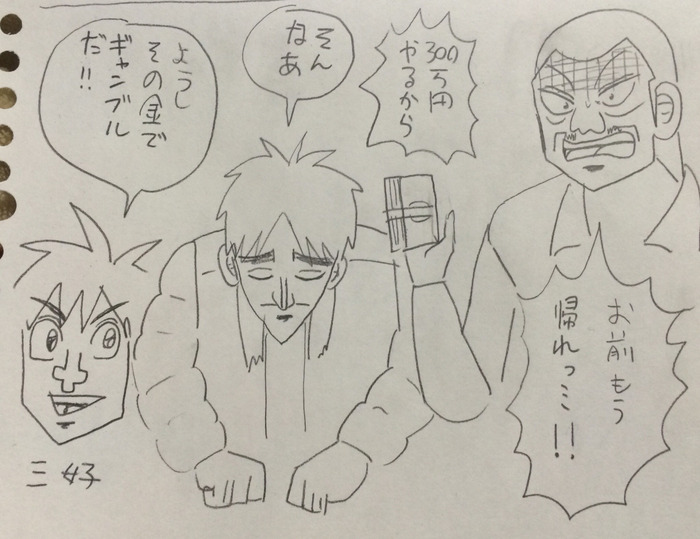 300
万円
やるから
お前もう
帰れっミ!!
そん
なあ
ようし
その金で
ギャンブル
だ!!
三好